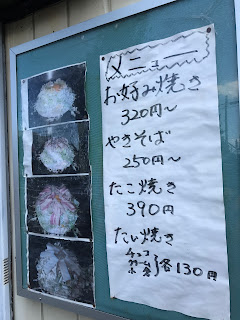 メニュー
お好み焼き
320円～
やきそば
250円～
たこ焼き
390円
たい焼き
チョコ
クリーム
小倉
}各130円